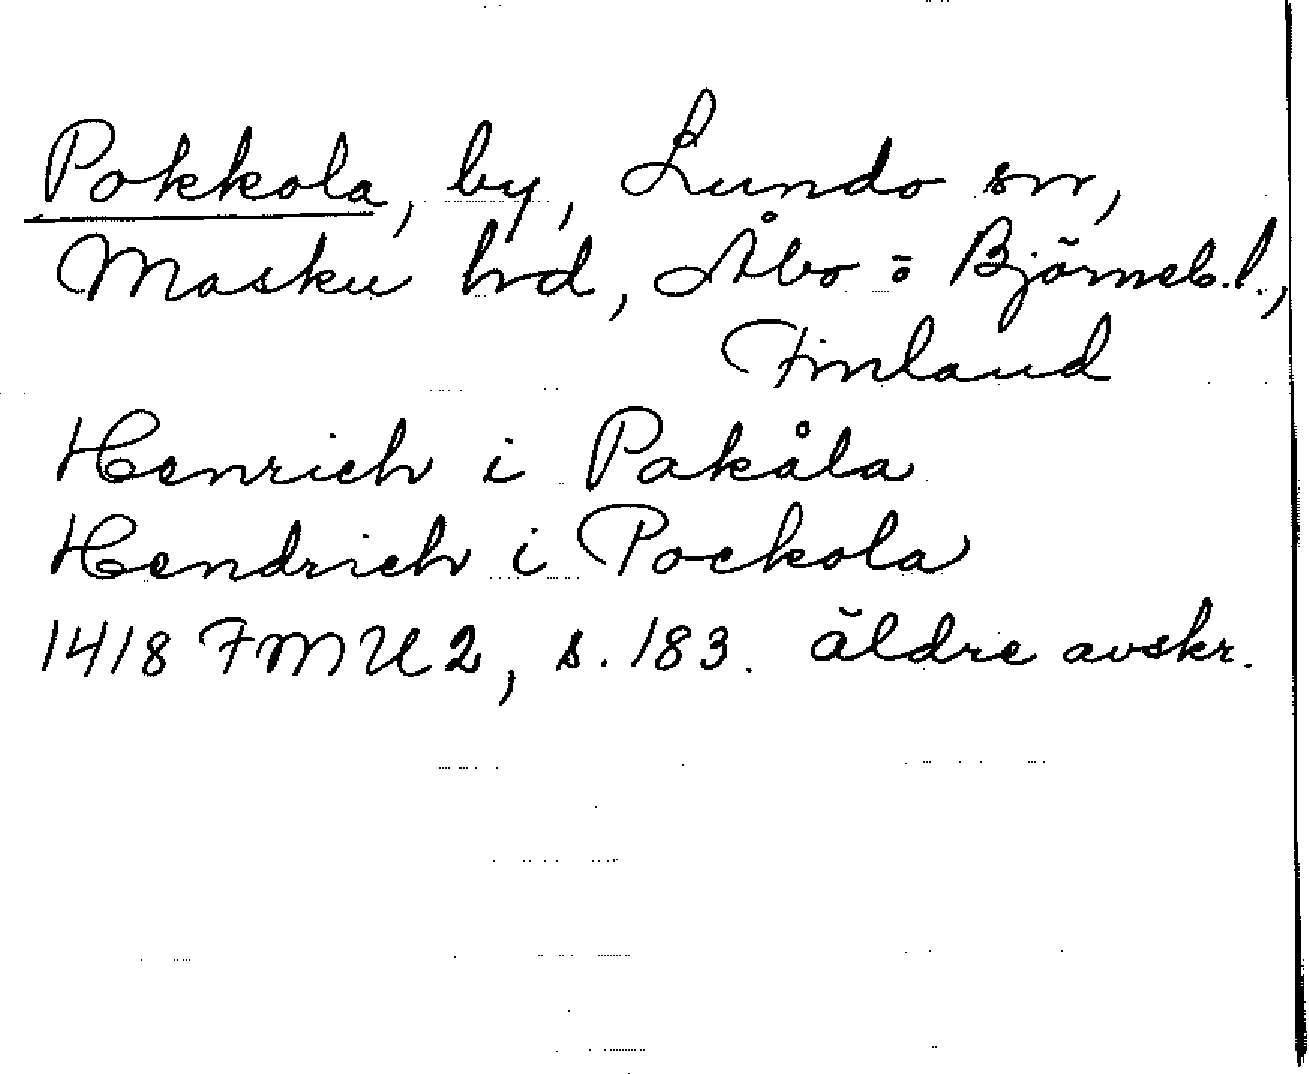 Pokkola, by, Lundo sn,
Masku hd, Åbo o Björneb. l.,
Finland
Henrich i Pakåla
Hendrich i Pockola
1418 FMU 2, s. 183. äldre avskr.